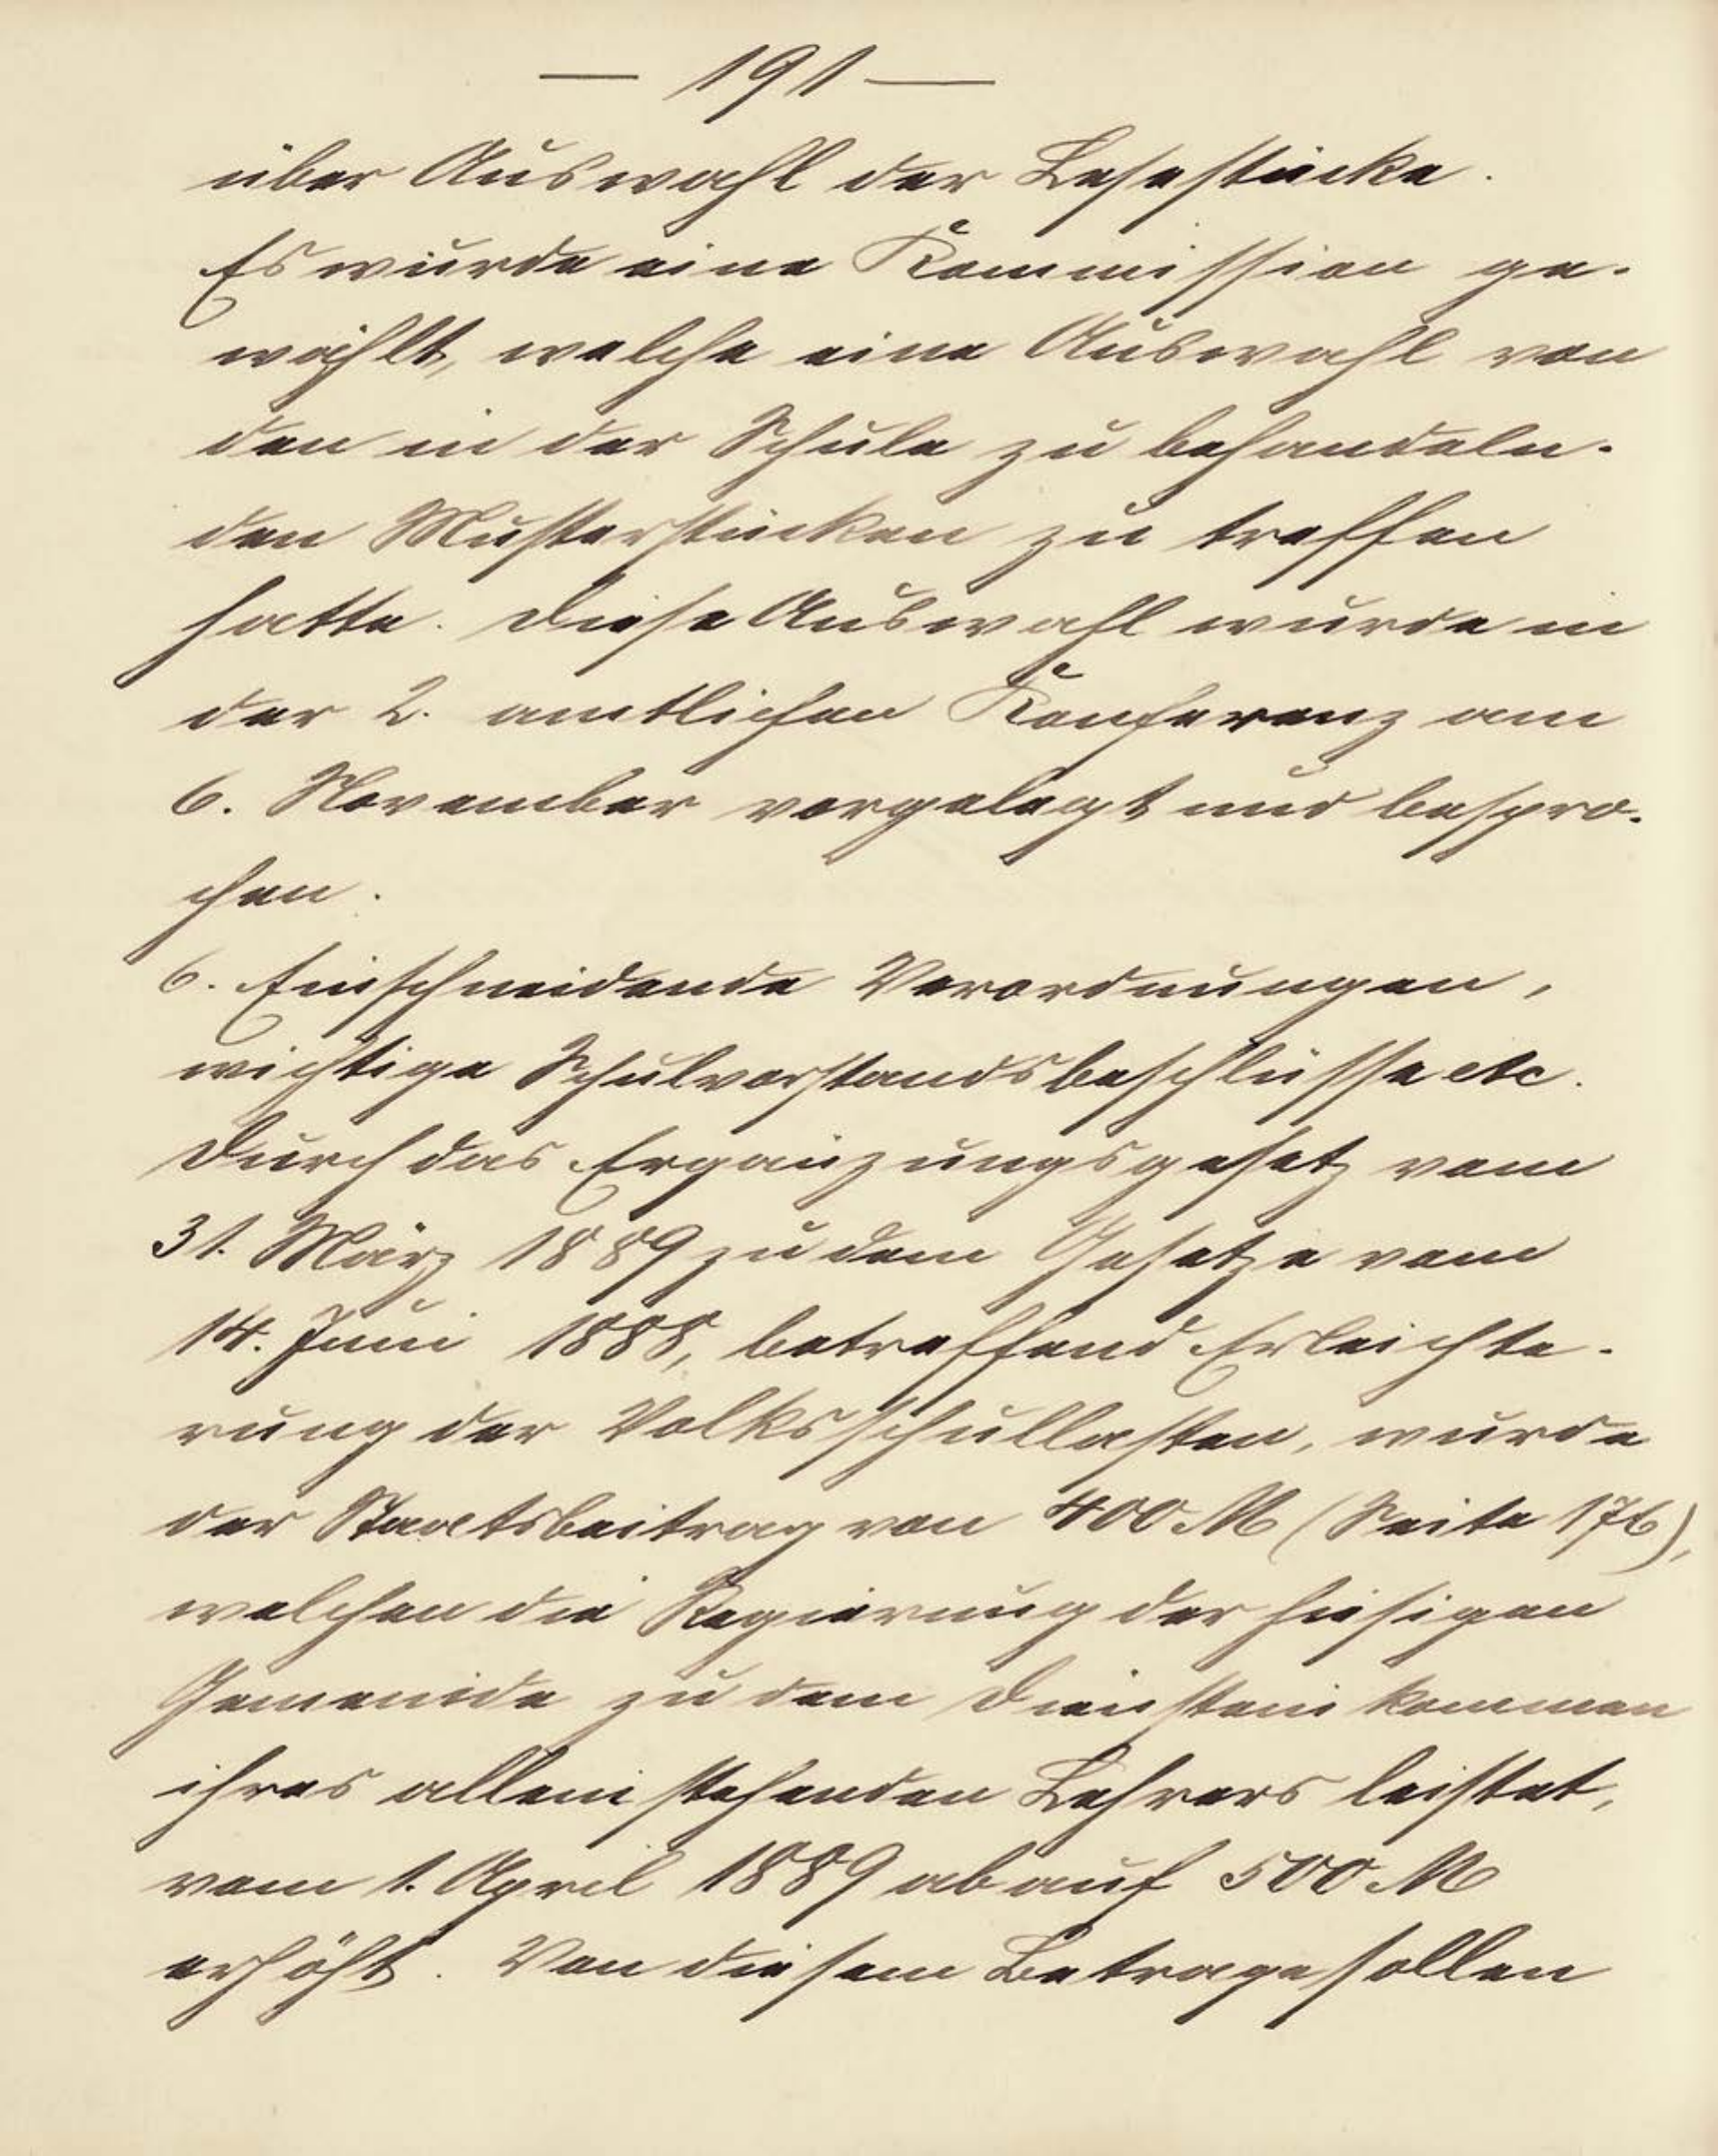 — 191 —
über Auswahl der Lesestücke.
Es wurde eine Kommission ge-
wählt, welche eine Auswahl von
den in der Schule zu behandeln-
den Musterstücken zu treffen
hatte. Diese Auswahl wurde in
der 2. amtlichen Konferenz am
6. November vorgelegt und bespro-
chen.
6. Einschneidende Verordnungen,
wichtige Schulvorstandsbeschlüsse etc.
Durch das Ergänzungsgesetz vom
31. März 1889 zu dem Gesetze vom
14. Juni 1888, betreffend Erleichte-
rung der Volksschullasten, wurde
der Staatsbeitrag von 400 M (Seite 176),
welchen die Regierung der hiesigen
Gemeinde zu dem Diensteinkommen
ihres alleinstehenden Lehrers leistet,
vom 1. April 1889 ab auf 500 M
erhöht. Von diesem Betrage sollen